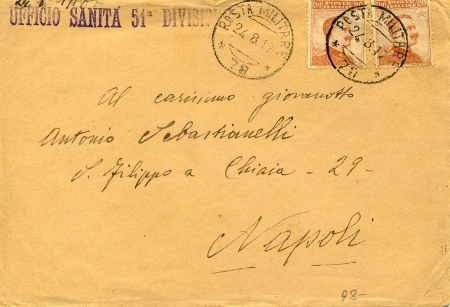 UFFICIO SANITÁ 51ª DIVISIO
POSTA MILITARE
24.8.17
78
POSTA MILITARE
24.8.17
78
Al carissimo giovanotto
Antonio Sebastianelli
S. Filippo a Chiaia - 29 -
Napoli
98-